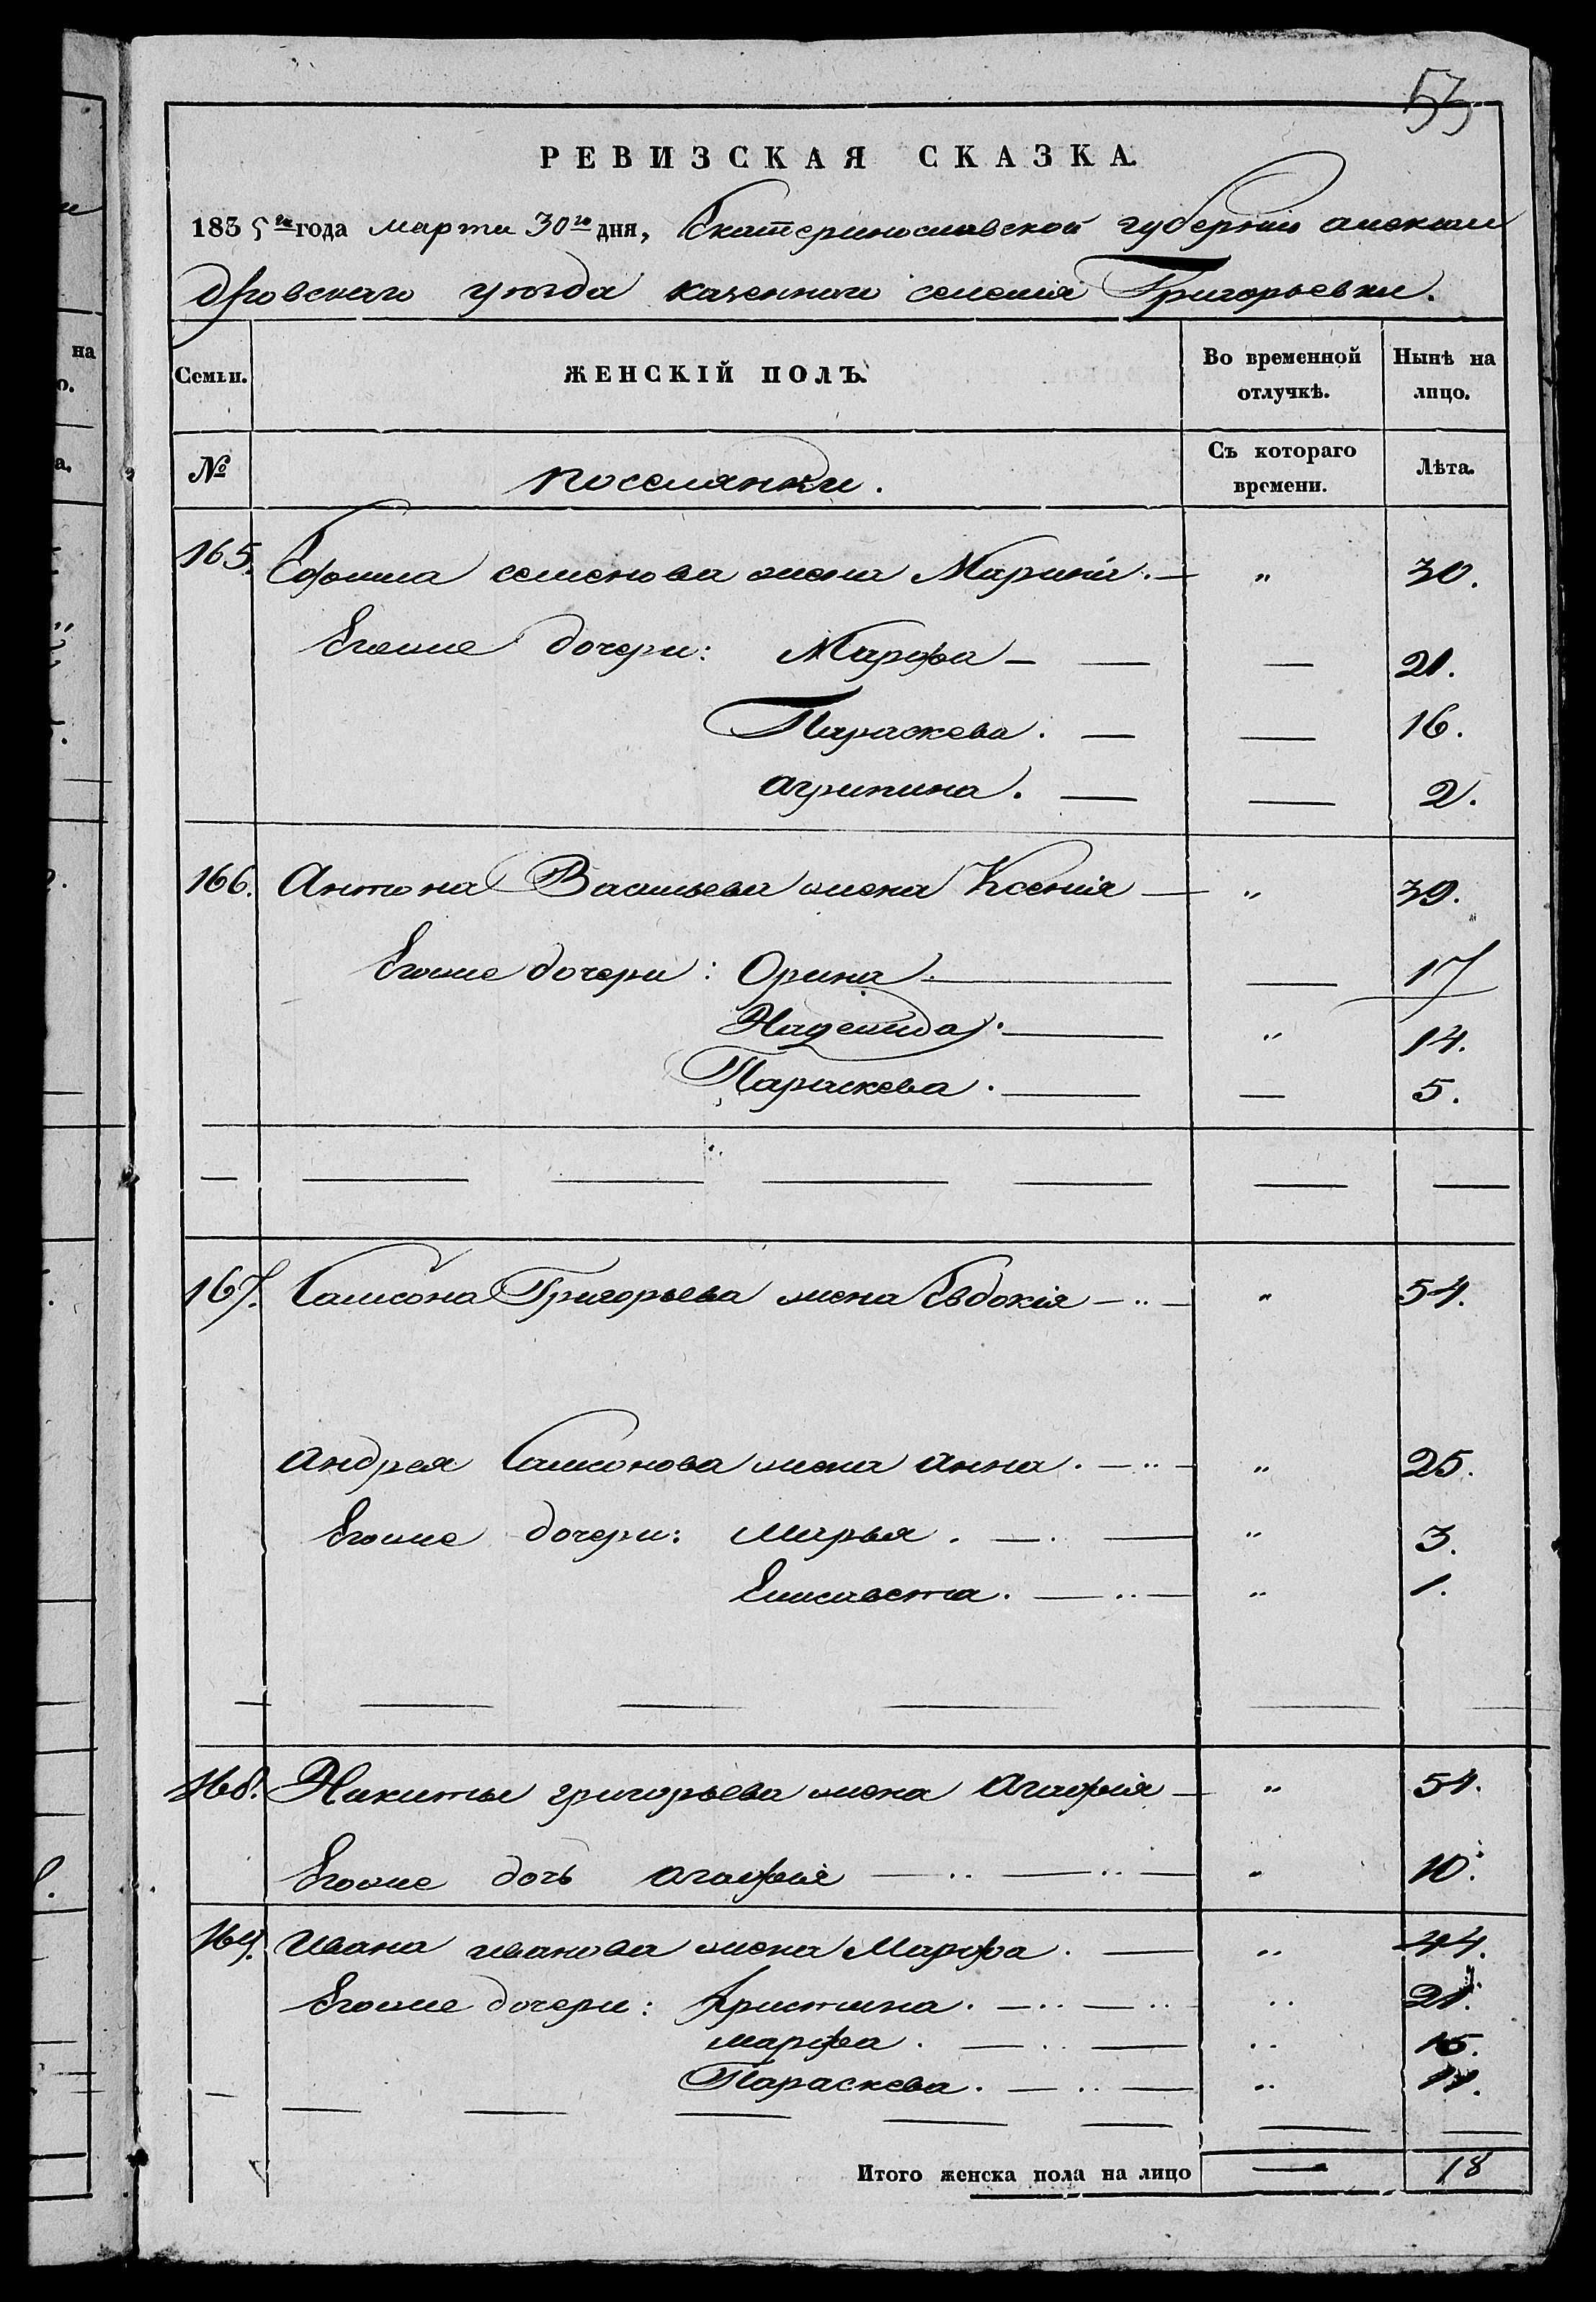 53
РЕВИЗСКАЯ СКАЗКА.
1835 го года марта 30 го дня, Екатеринославской губерніи александ
дровскаго уѣзда казеннаго селенія Григорьевки.
Семьи. ЖЕНСКІЙ ПОЛЪ. Во временной отлучкѣ. Нынѣ на лицо.
№ поселянки. Съ котораго времени. Лѣта.
165. семенова жена Марина. — " 30.
Егоже дочери: Марфа — — — 21.
Параскева. — — 16.
агрипина. — — 2.
166. Антона Васильева жена Ксенія — " 39.
Егоже дочери: Орина — — 17
Надежда. — " 14.
Параскева. — — 5.
167. Самсона Григорьева жена Евдокія — " 54.
Андрея Самсонова жена анна. — " 25.
Егоже дочери: марья. — " 3.
Елисавета. — " 1.
168. Никиты григорьева жена Агафія — " 54.
Егоже дочь агафія — " 10.
169. Ивана иванова жена Марфа. — " 44.
Егоже дочери: христина. — " 21.
марфа. — " 15.
Параскева. — "
Итого женска пола на лицо — 18